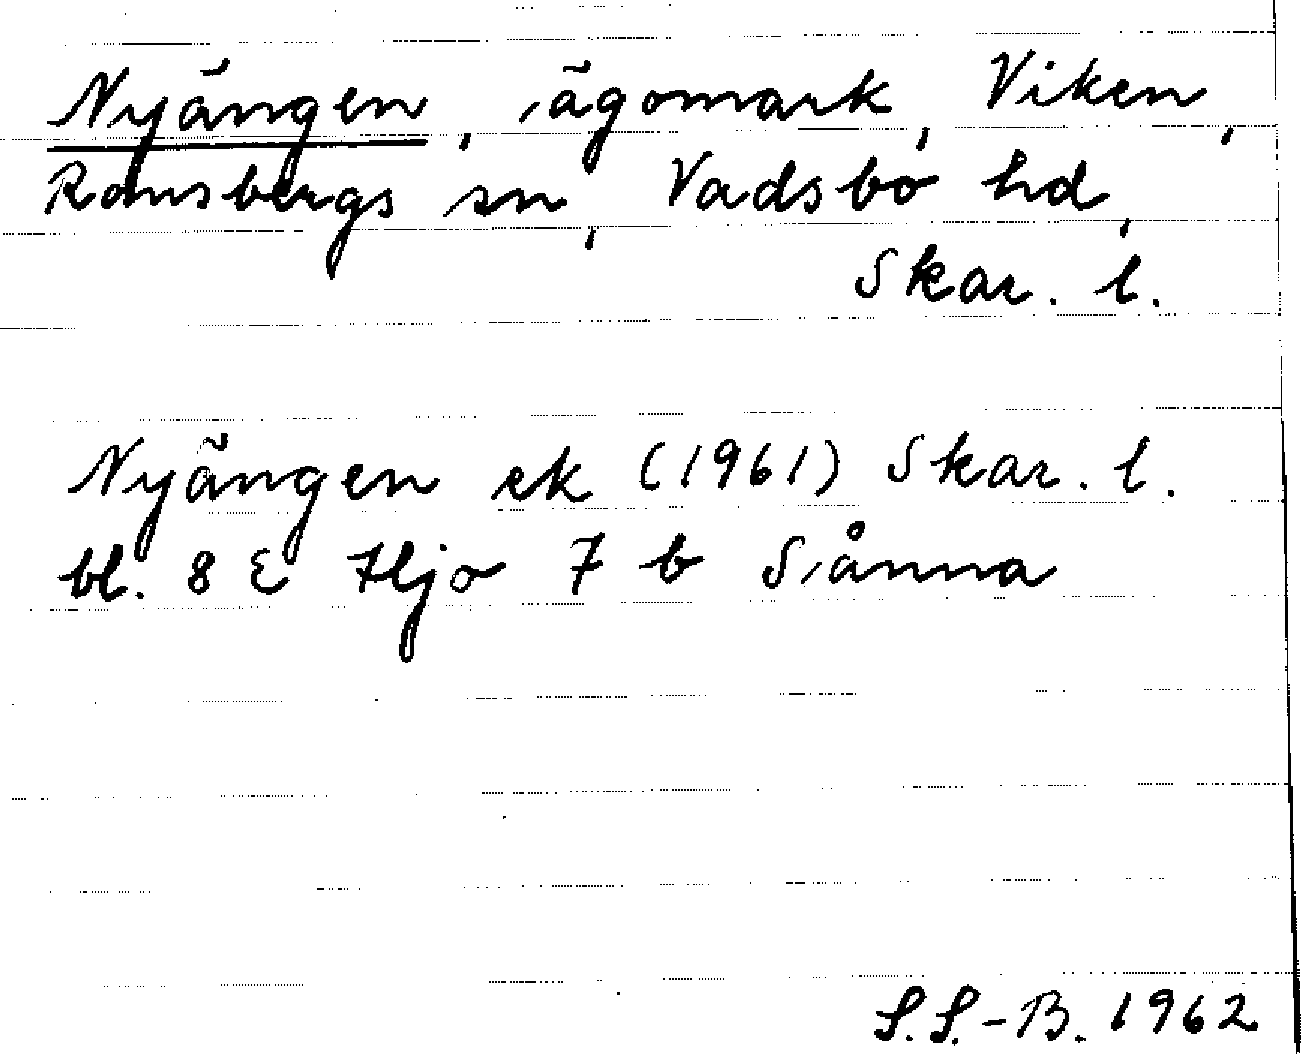 Nyängen, ägomark, Viken,
Ransbergs sn, Vadsbo hd,
Skar. l.
Nyängen ek (1961) Skar. l.
bl. 8 E Hjo 7 b Sånna
S.S.-B. 1962